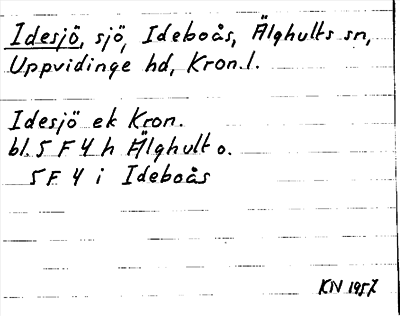 Idesjö, sjö, Ideboås, Älghults sn,
Uppvidinge hd, Kron.l.
Idesjö ek Kron.
bl. 5 F 4 h Älghult o.
5 F 4 i Ideboås
KN 1957